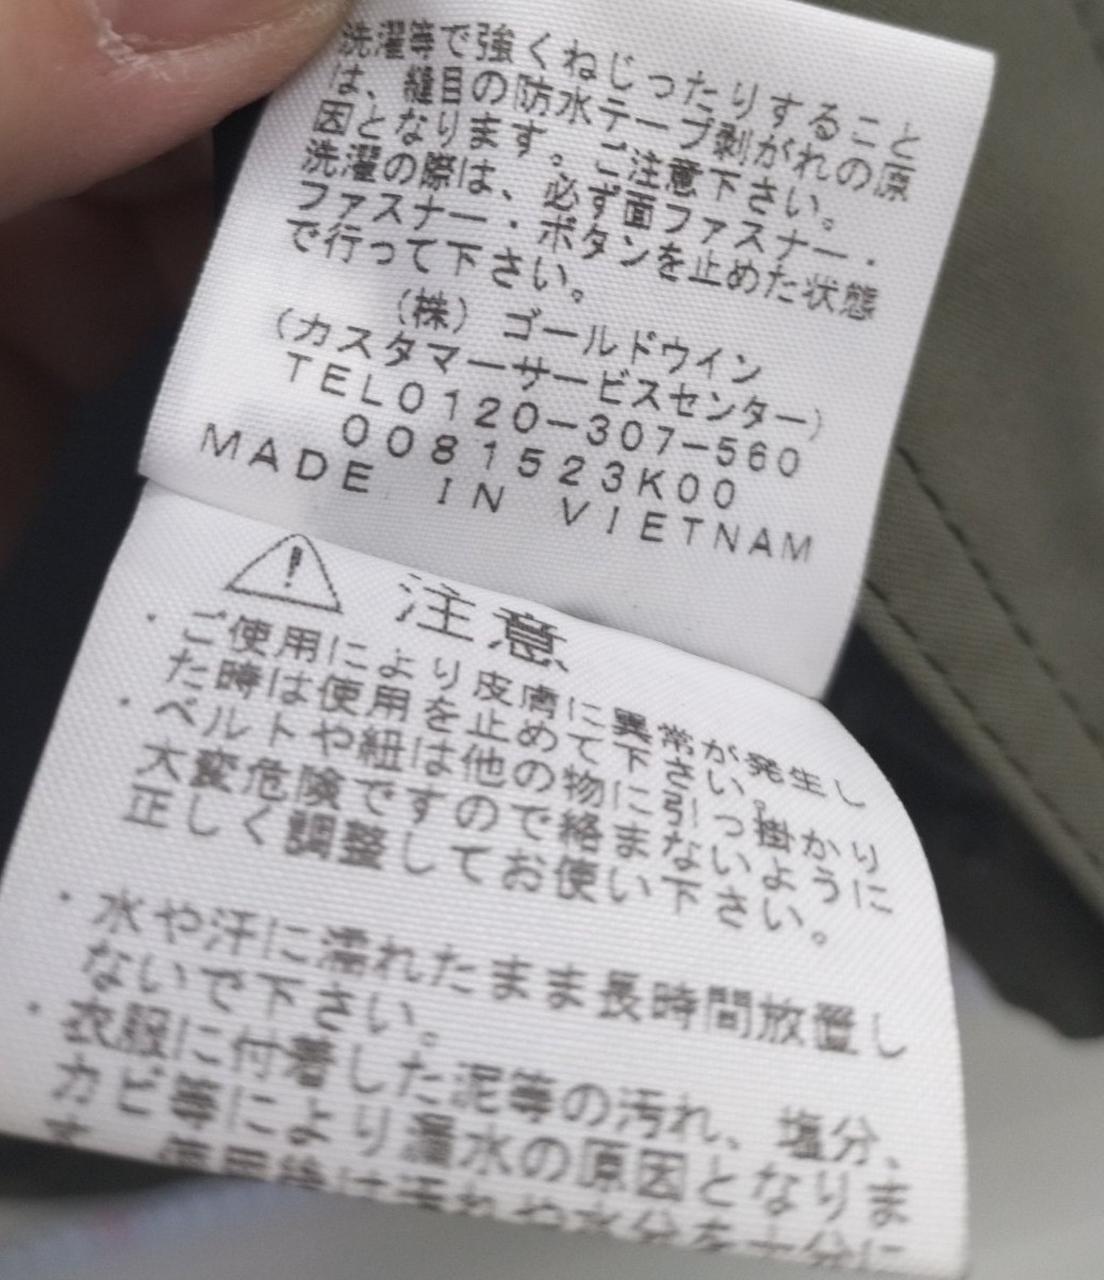 洗濯等で強くねじったりすること
は、縫目の防水テープ剥がれの原
因となります。ご注意下さい。
洗濯の際は、必ず面ファスナー・
ファスナー・ボタンを止めた状態
で行って下さい。
(株) ゴールドウイン
(カスタマーサービスセンター)
TEL0120-307-560
0081523K00
MADE IN VIETNAM
注意
・ご使用により皮膚に異常が発生し
た時は使用を止めて下さい。
・ベルトや紐は他の物に引っ掛かり
大変危険ですので絡まないように
正しく調整してお使い下さい。
・水や汗に濡れたまま長時間放置し
ないで下さい。
・衣服に付着した泥等の汚れ、塩分、
カビ等により漏水の原因となりま
す。使用後は汚れや水分を十分に